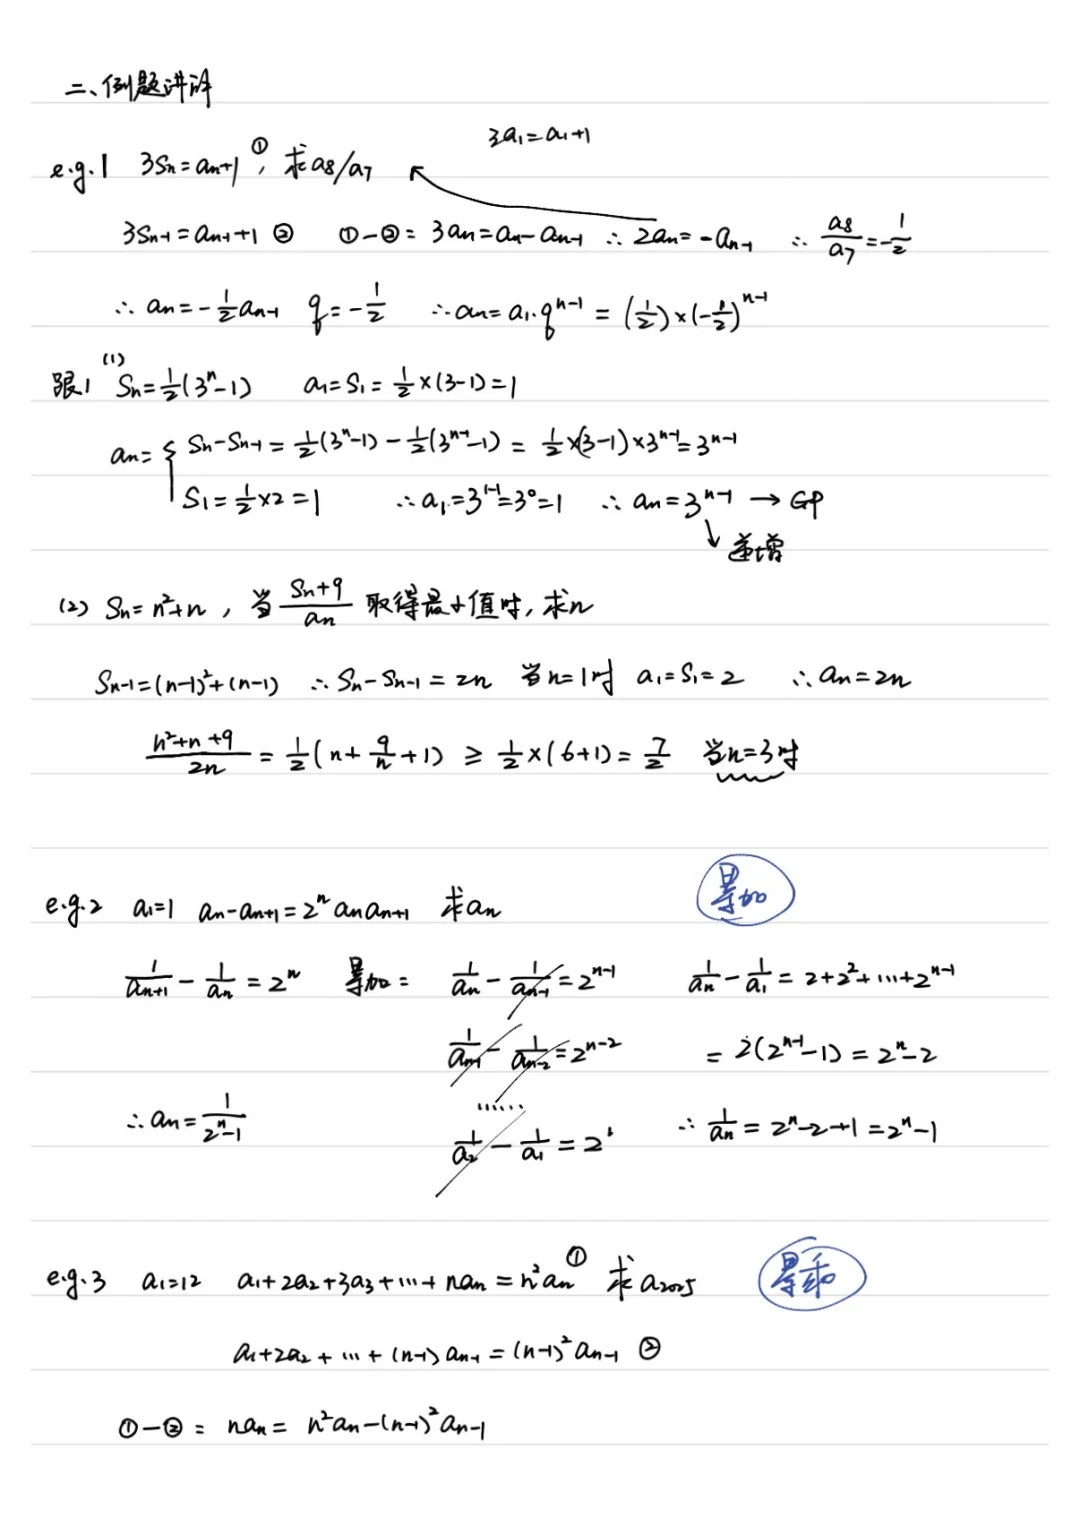 二、例题讲解
3a₁=a₁+1
e.g.1 3Sn=an+1 ①, 求a₈/a₇
3Sn-1=an-1+1 ② ①-②: 3an=an-an-1 ∴ 2an=-an-1 ∴ a₈/a₇=-1/2
∴ an=-1/2an-1 q=-1/2 ∴an=a₁·qⁿ⁻¹=(1/2)×(-1/2)ⁿ⁻¹
跟1 (1) Sn=1/2(3ⁿ-1) a₁=S₁=1/2×(3-1)=1
an={ Sn-Sn-1=1/2(3ⁿ-1)-1/2(3ⁿ⁻¹-1)=1/2×(3-1)×3ⁿ⁻¹=3ⁿ⁻¹
S₁=1/2×2=1 ∴a₁=3¹⁻¹=3⁰=1 ∴ an=3ⁿ⁻¹ → GP
↓ 递增
(2) Sn=n²+n, 当 (Sn+9)/an 取得最小值时, 求n
Sn-1=(n-1)²+(n-1) ∴Sn-Sn-1=2n 当n=1时 a₁=S₁=2 ∴an=2n
(n²+n+9)/2n=1/2(n+9/n+1)≥1/2×(6+1)=7/2 当n=3时
e.g.2 a₁=1 an-an+1=2ⁿanan+1 求an 累加
1/an+1-1/an=2ⁿ 累加: 1/an-1/an-1=2ⁿ⁻¹ 1/an-1/a₁=2+2²+…+2ⁿ⁻¹
1/an-1-1/an-2=2ⁿ⁻² =2(2ⁿ⁻¹-1)=2ⁿ-2
……
∴an=1/(2ⁿ-1) 1/a₂-1/a₁=2¹ ∴1/an=2ⁿ-2+1=2ⁿ-1
e.g.3 a₁=12 a₁+2a₂+3a₃+…+nan=n²an ① 求a₂₀₂₅ 累乘
a₁+2a₂+…+(n-1)an-1=(n-1)²an-1 ②
①-②: nan=n²an-(n-1)²an-1